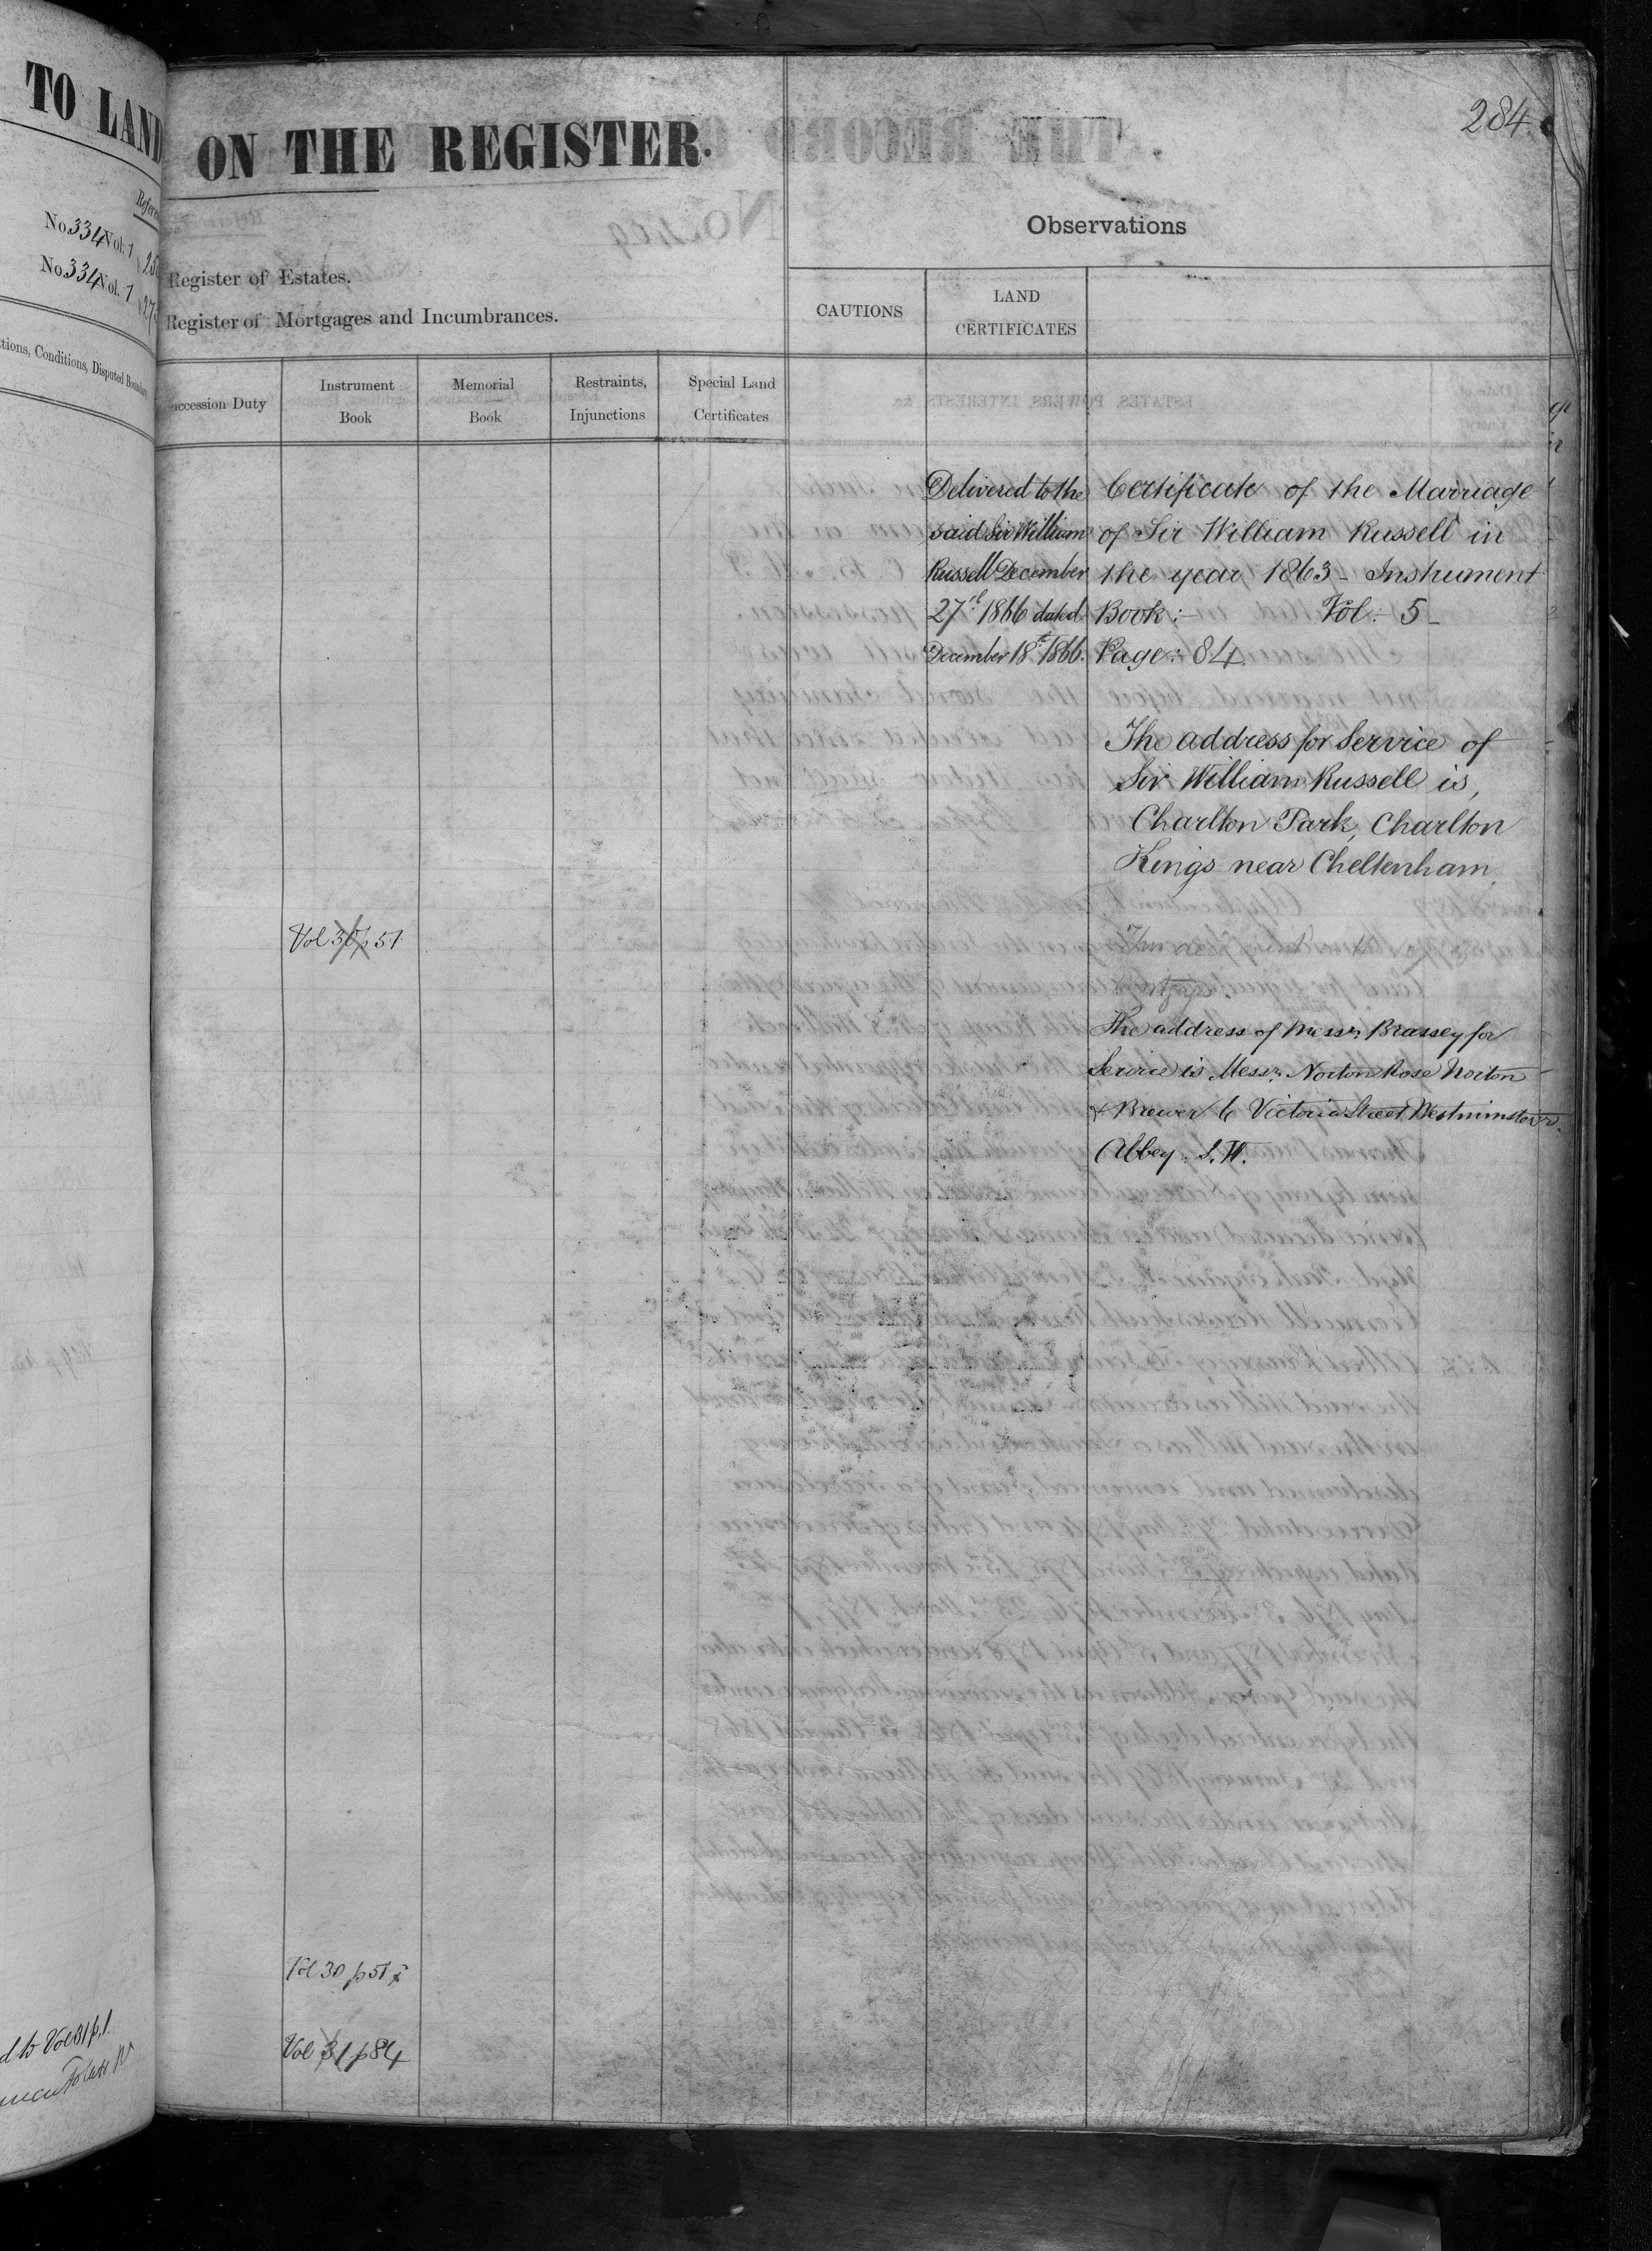 TO LAND
No 334 Vol. 1
No 334 Vol. 1
tions, Conditions, Disputed Boundary
d to Vol 31 p. 1.
284.
ON THE REGISTER.
Observations
Register of Estates.
Register of Mortgages and Incumbrances.
CAUTIONS
LAND
CERTIFICATES
ccession Duty
Instrument
Book
Memorial
Book
Restraints,
Injunctions
Special Land
Certificates
Delivered to the
said Sir William
Russell December
27th 1866 dated
December 18th 1866.
Certificate of the Marriage
of Sir William Russell in
the year 1863 - Instrument
Book :- Vol :- 5 -
Page :- 84.
The address for Service of
Sir William Russell is,
Charlton Park, Charlton
Kings near Cheltenham
Vol 30 p 51
The address of Messrs Brassey for
Service is Messrs Norton Rose Norton
& Brewer 6 Victoria Street Westminster
Abbey. S.W.
Vol 30 p 51
Vol 31 p 84